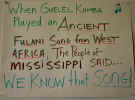 When Guelel Kumba
Played an ANCIENT
FULANI Song from WEST
AFRICA The People of
MISSISSIPPI SAID...
WE KNOW that SONG!